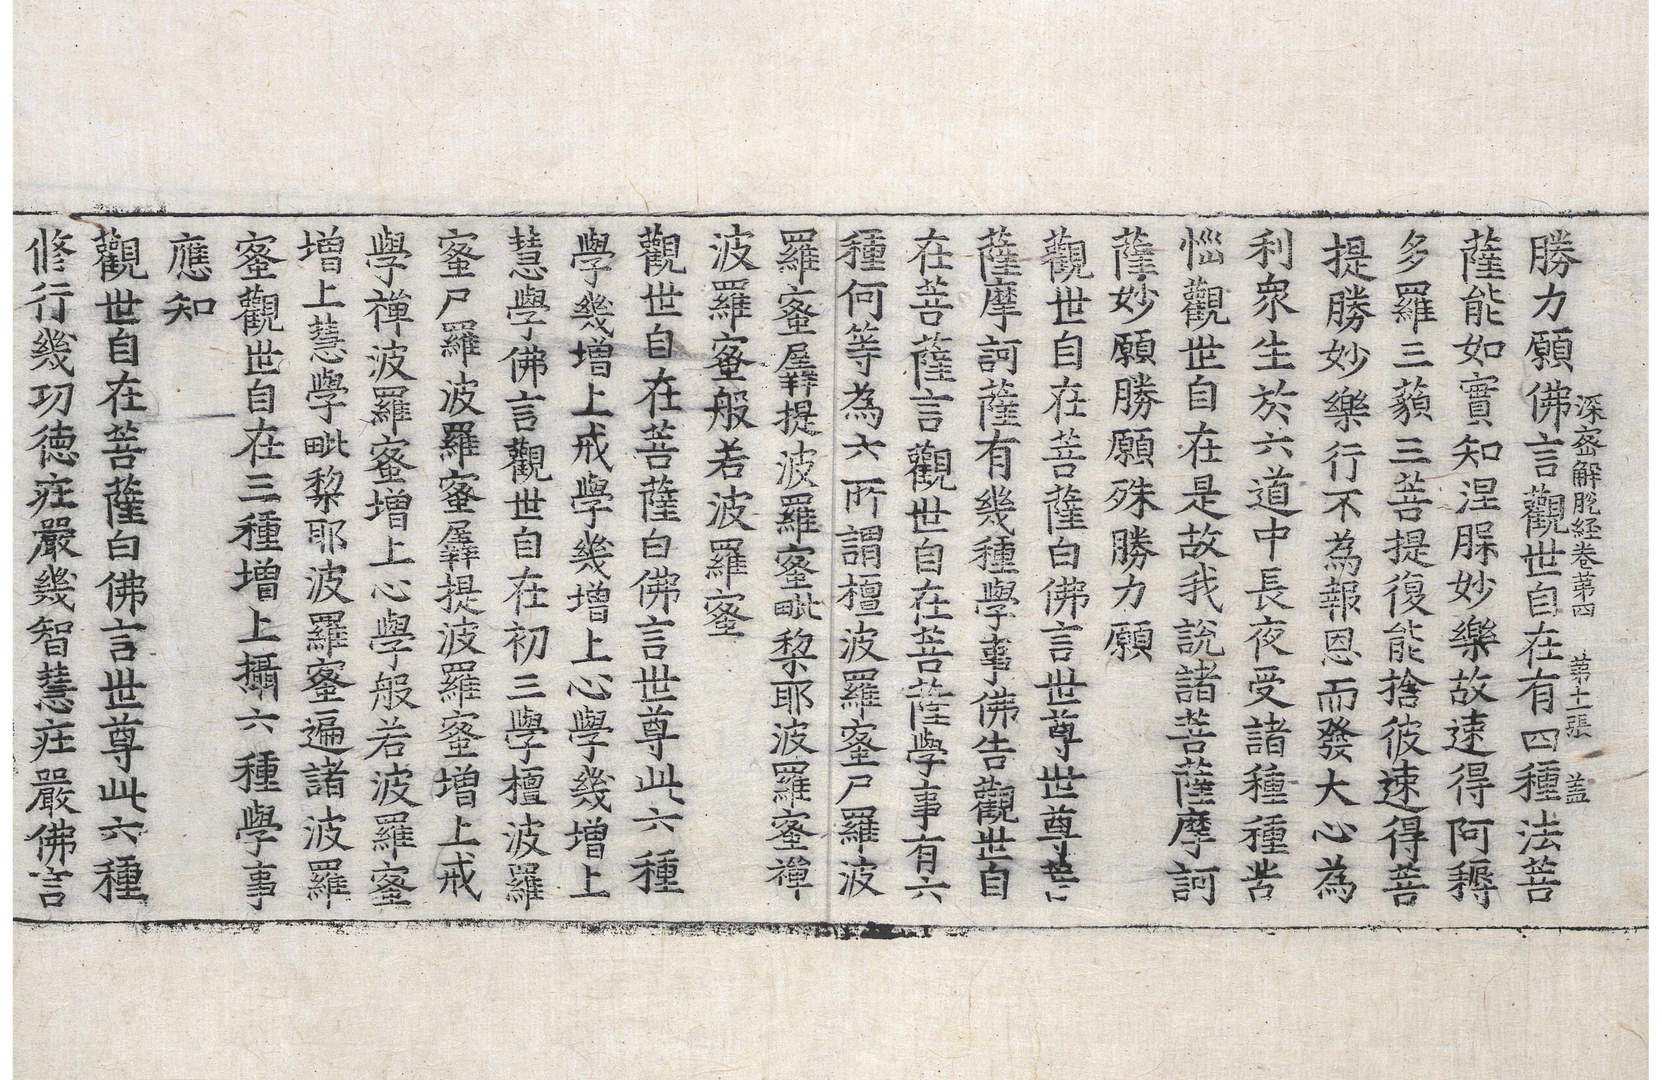 深密解脫經卷第四 第十一張 盖
勝力願佛言觀世自在有四種法菩
薩能如實知涅槃妙樂故速得阿耨
多羅三藐三菩提復能捨彼速得菩
提勝妙樂行不為報恩而發大心為
利衆生於六道中長夜受諸種種苦
惱觀世自在是故我說諸菩薩摩訶
薩妙願勝願殊勝力願
觀世自在菩薩白佛言世尊世尊菩
薩摩訶薩有幾種學事佛告觀世自
在菩薩言觀世自在菩薩學事有六
種何等為六所謂檀波羅蜜尸羅波
羅蜜羼提波羅蜜毗黎耶波羅蜜禪
波羅蜜般若波羅蜜
觀世自在菩薩白佛言世尊此六種
學幾增上戒學幾增上心學幾增上
慧學佛言觀世自在初三學檀波羅
蜜尸羅波羅蜜羼提波羅蜜增上戒
學禪波羅蜜增上心學般若波羅蜜
增上慧學毗黎耶波羅蜜遍諸波羅
蜜觀世自在三種增上攝六種學事
應知
觀世自在菩薩白佛言世尊此六種
修行幾功德莊嚴幾智慧莊嚴佛言